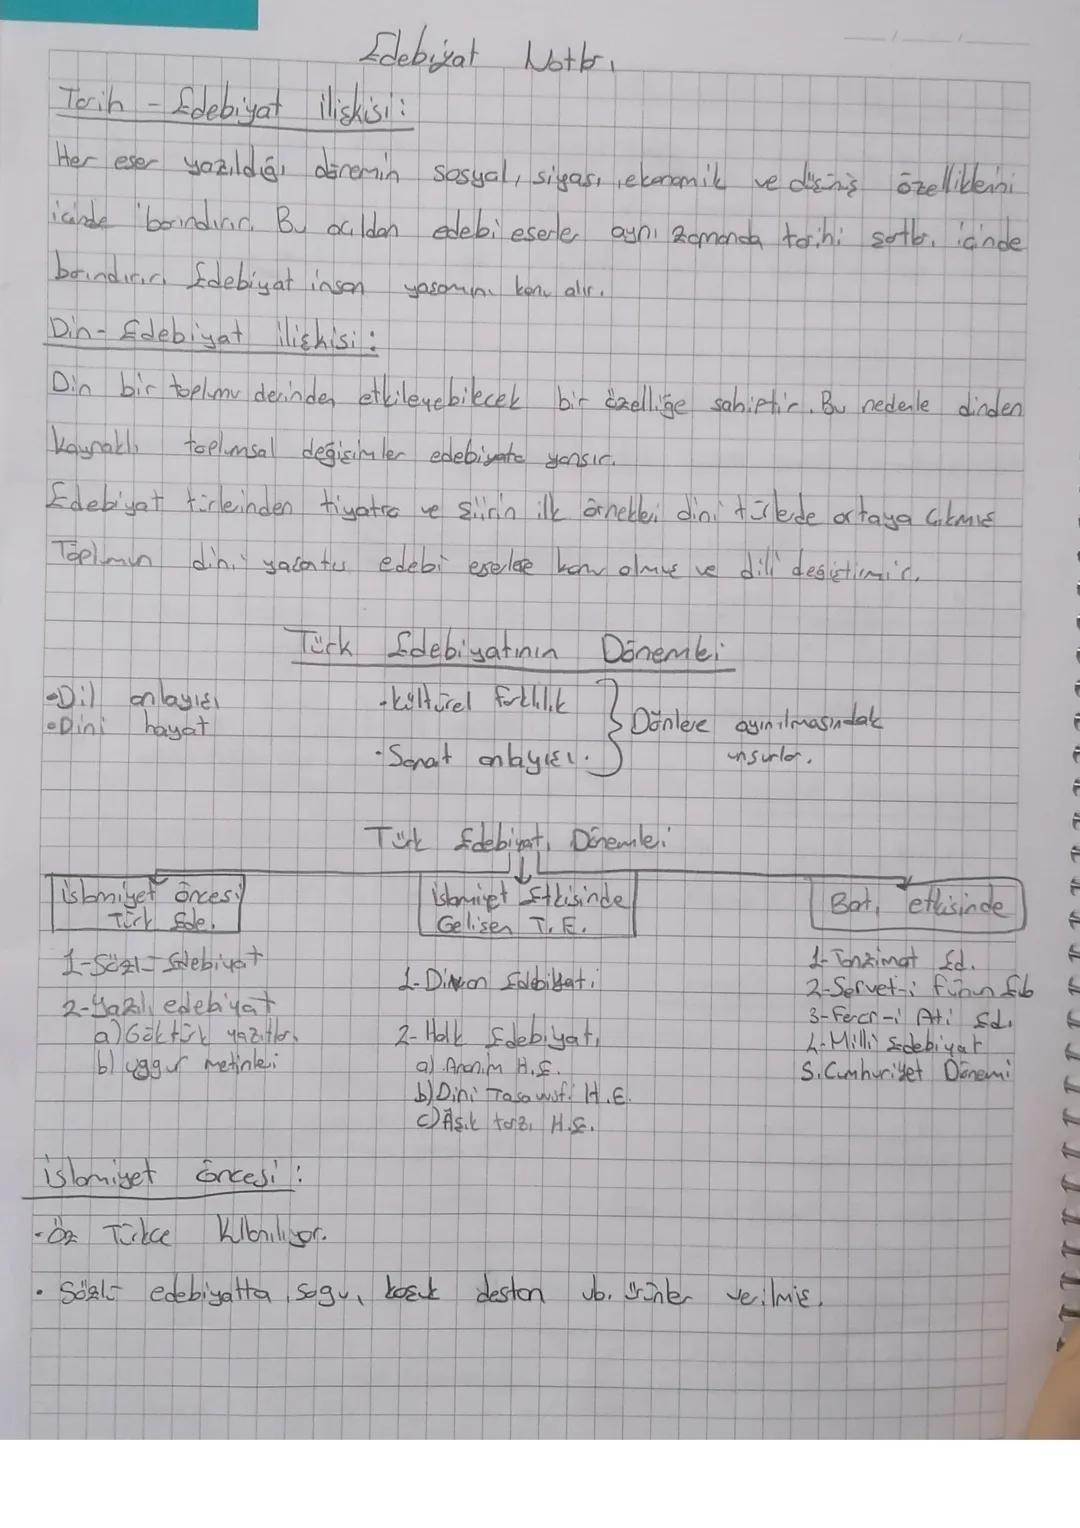 Edebiyat Notları
Tarih - Edebiyat ilişkisi:
Her eser yazıldığı dönemin sosyal, siyasi, ekonomik ve düşünüş özelliklerini
içinde barındırır. Bu açıdan edebi eserler aynı zamanda tarihi satları içinde
barındırır. Edebiyat insan yaşamını konu alır.
Din - Edebiyat ilişkisi:
Din bir toplumu derinden etkileyebilecek bir özelliğe sahiptir. Bu nedenle dinden
kaynaklı toplumsal değişimler edebiyata yansır.
Edebiyat türlerinden tiyatro ve şiirin ilk örnekleri dini türlerde ortaya çıkmış
Toplumun dini yaşantısı edebi eserlere konu olmuş ve dili değiştirmiş.
Türk Edebiyatının Dönemleri
•Dil anlayışı
•Dini hayat
•Kültürel farklılık
•Sanat anlayışı.
Dönemlere ayırılmasındaki
unsurlar.
Türk Edebiyatı Dönemleri
İslamiyet öncesi
Türk Ede.
1-Sözlü Edebiyat
2-Yazılı edebiyat
a) Göktürk yazıtları
b) uygur metinleri
İslamiyet Etkisinde
Gelişen T. E.
1-Divan Edebiyatı
2-Halk Edebiyatı
a) Anonim H.E.
b) Dini Tasavvufi H.E.
c) Aşık tarzı H.E.
Batı etkisinde
1-Tanzimat Ed.
2-Servet-i Fünun Eb
3-Fecr-i Ati Ed.
4-Milli Edebiyat
5.Cumhuriyet Dönemi
İslamiyet öncesi:
•Öz Türkçe kullanılıyor.
• Sözlü edebiyatta, sagu, koşuk destan vb. ürünler verilmiş.